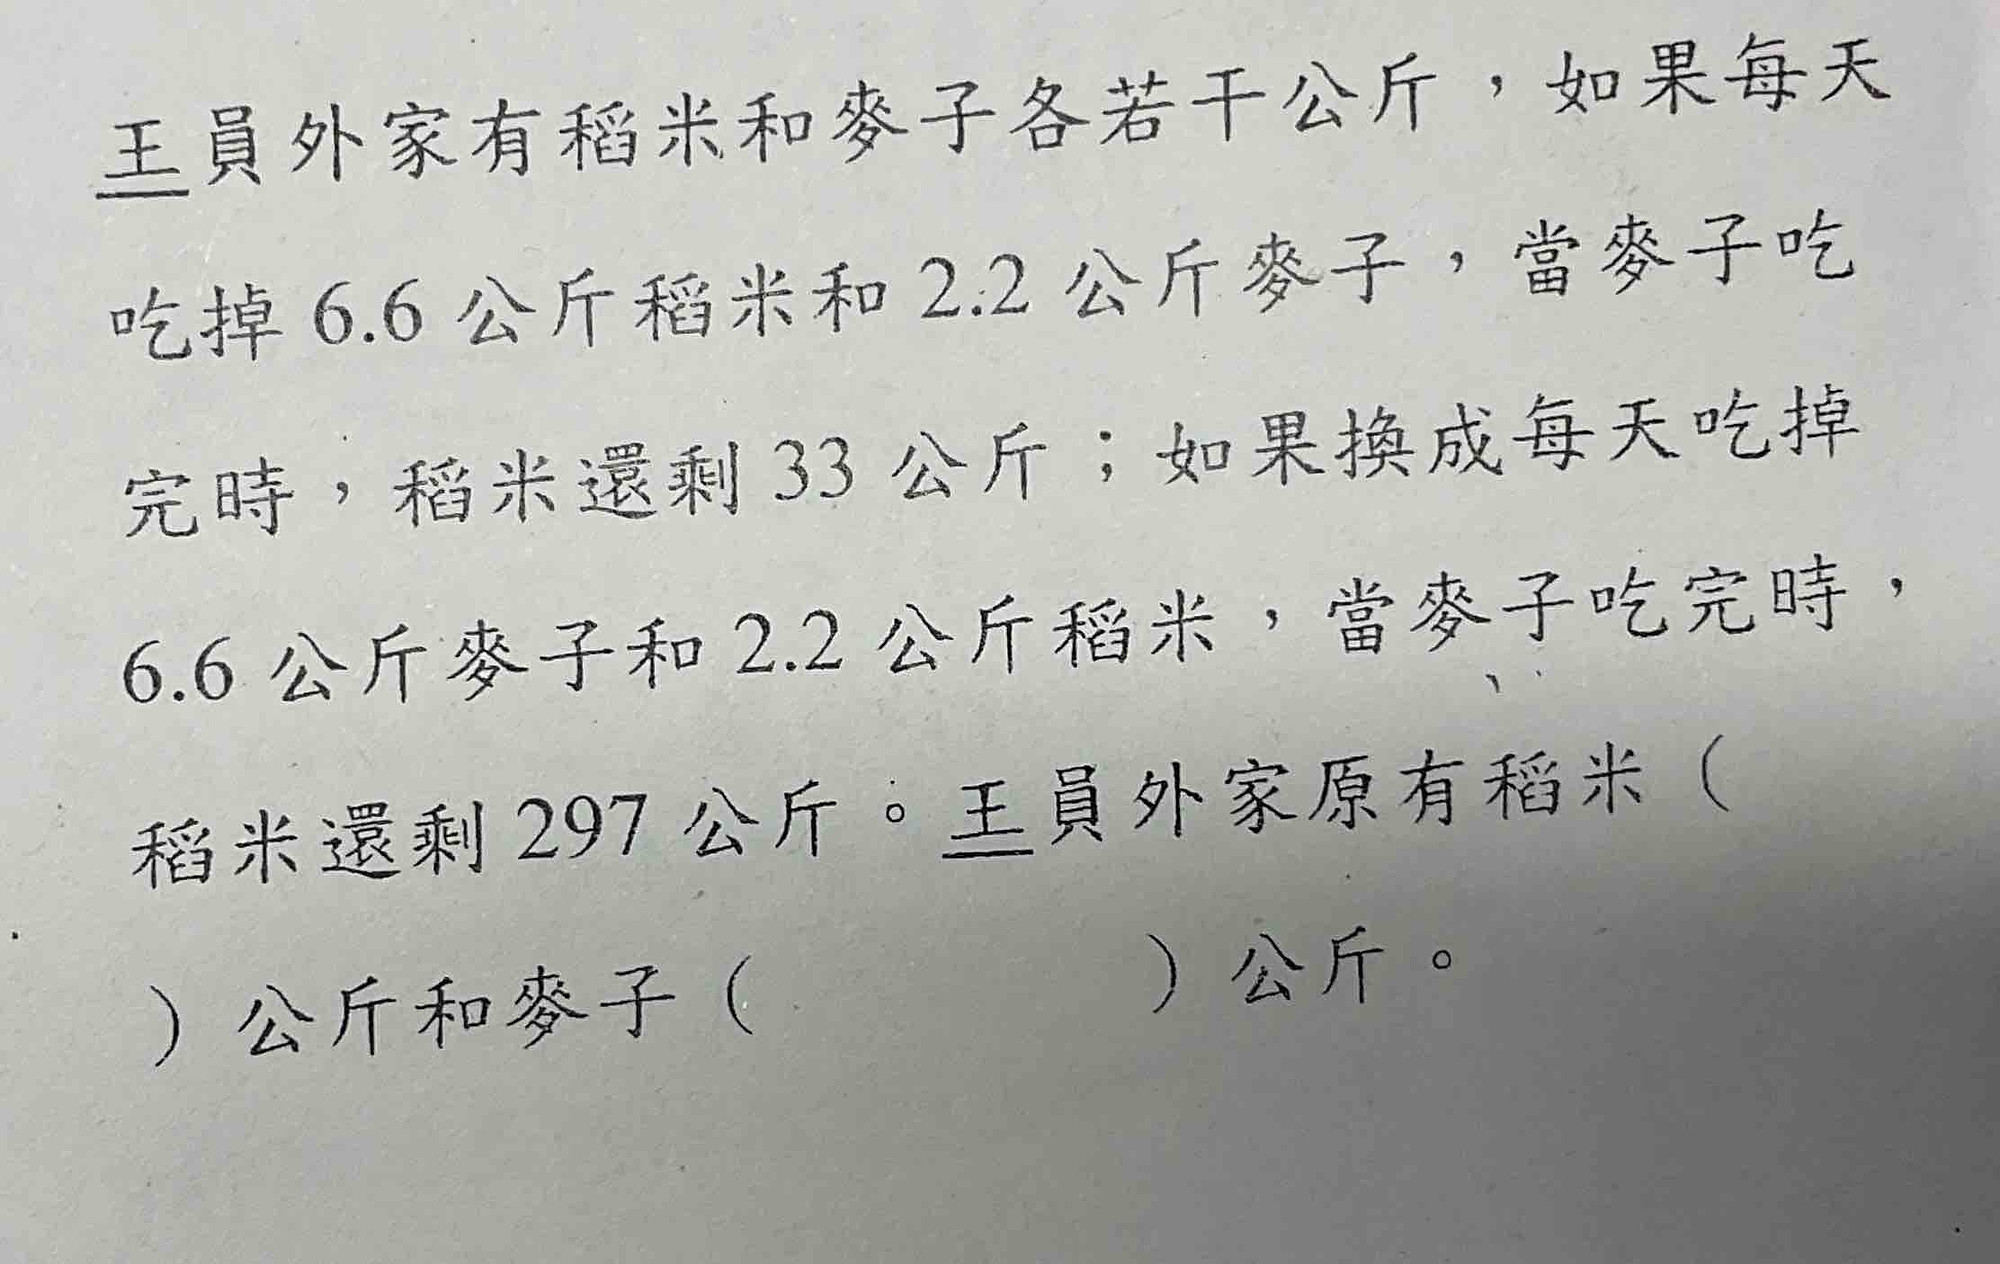 王員外家有稻米和麥子各若干公斤，如果每天
吃掉 6.6 公斤稻米和 2.2 公斤麥子，當麥子吃
完時，稻米還剩 33 公斤；如果換成每天吃掉
6.6 公斤麥子和 2.2 公斤稻米，當麥子吃完時，
稻米還剩 297 公斤。王員外家原有稻米（
）公斤和麥子（　　　　）公斤。